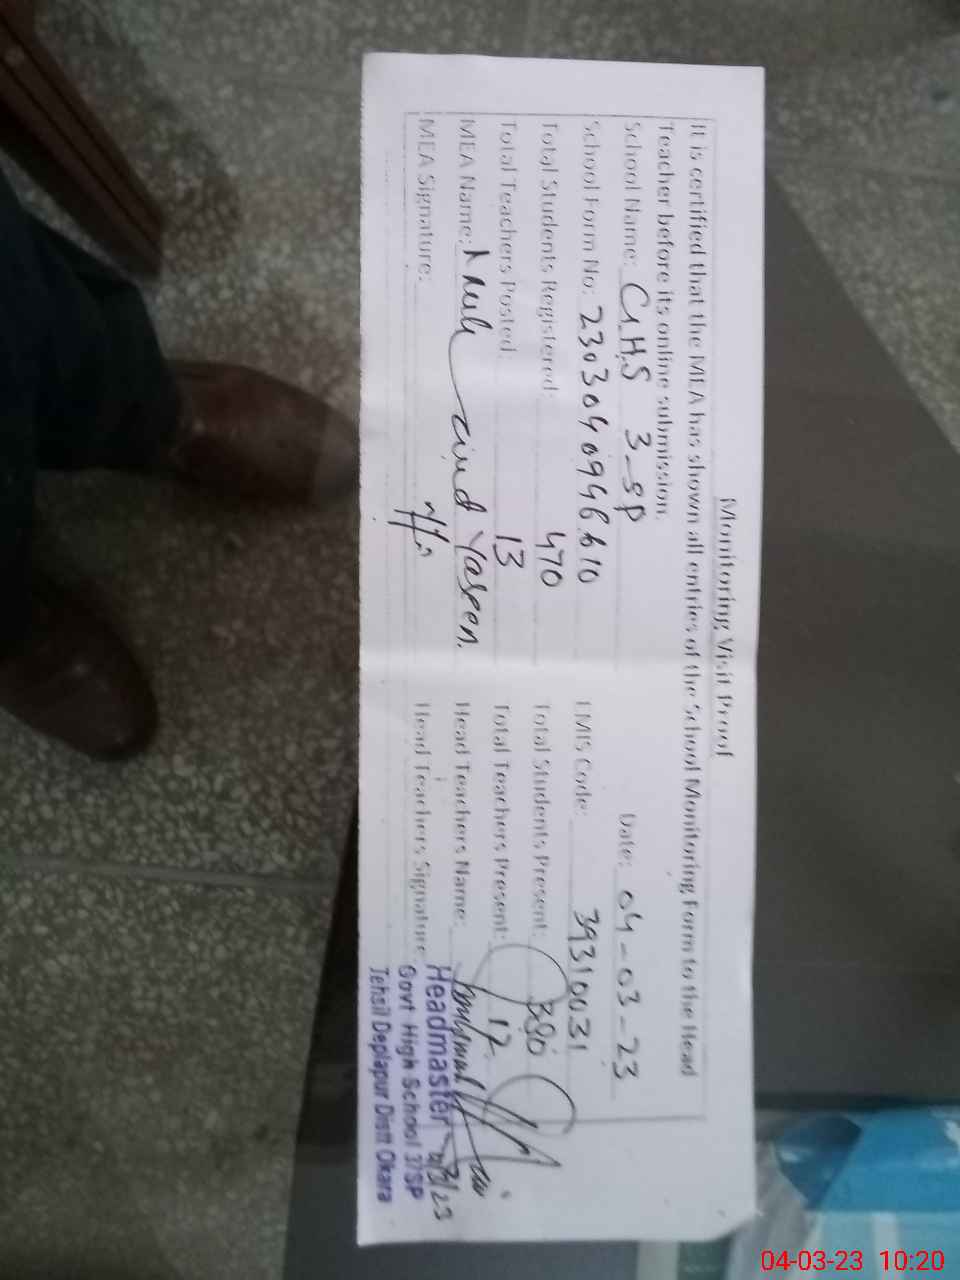 Monitoring Visit Proof
It is certified that the MEA has shown all entries of the School Monitoring Form to the Head
Teacher before its online submission.
Date: 04-03-23
School Name: GHS 3-SP
School Form No: EMIS Code: 39310031
Total Students Registered: 470 Total Students Present: 380
Total Teachers Posted: 13 Total Teachers Present: 12
MEA Name: Yaseen. Head Teachers Name:
MEA Signature: Head Teachers Signature:
Headmaster
Govt High School 3/SP
Tehsil Depalpur Distt Okara
04-03-23 10:20